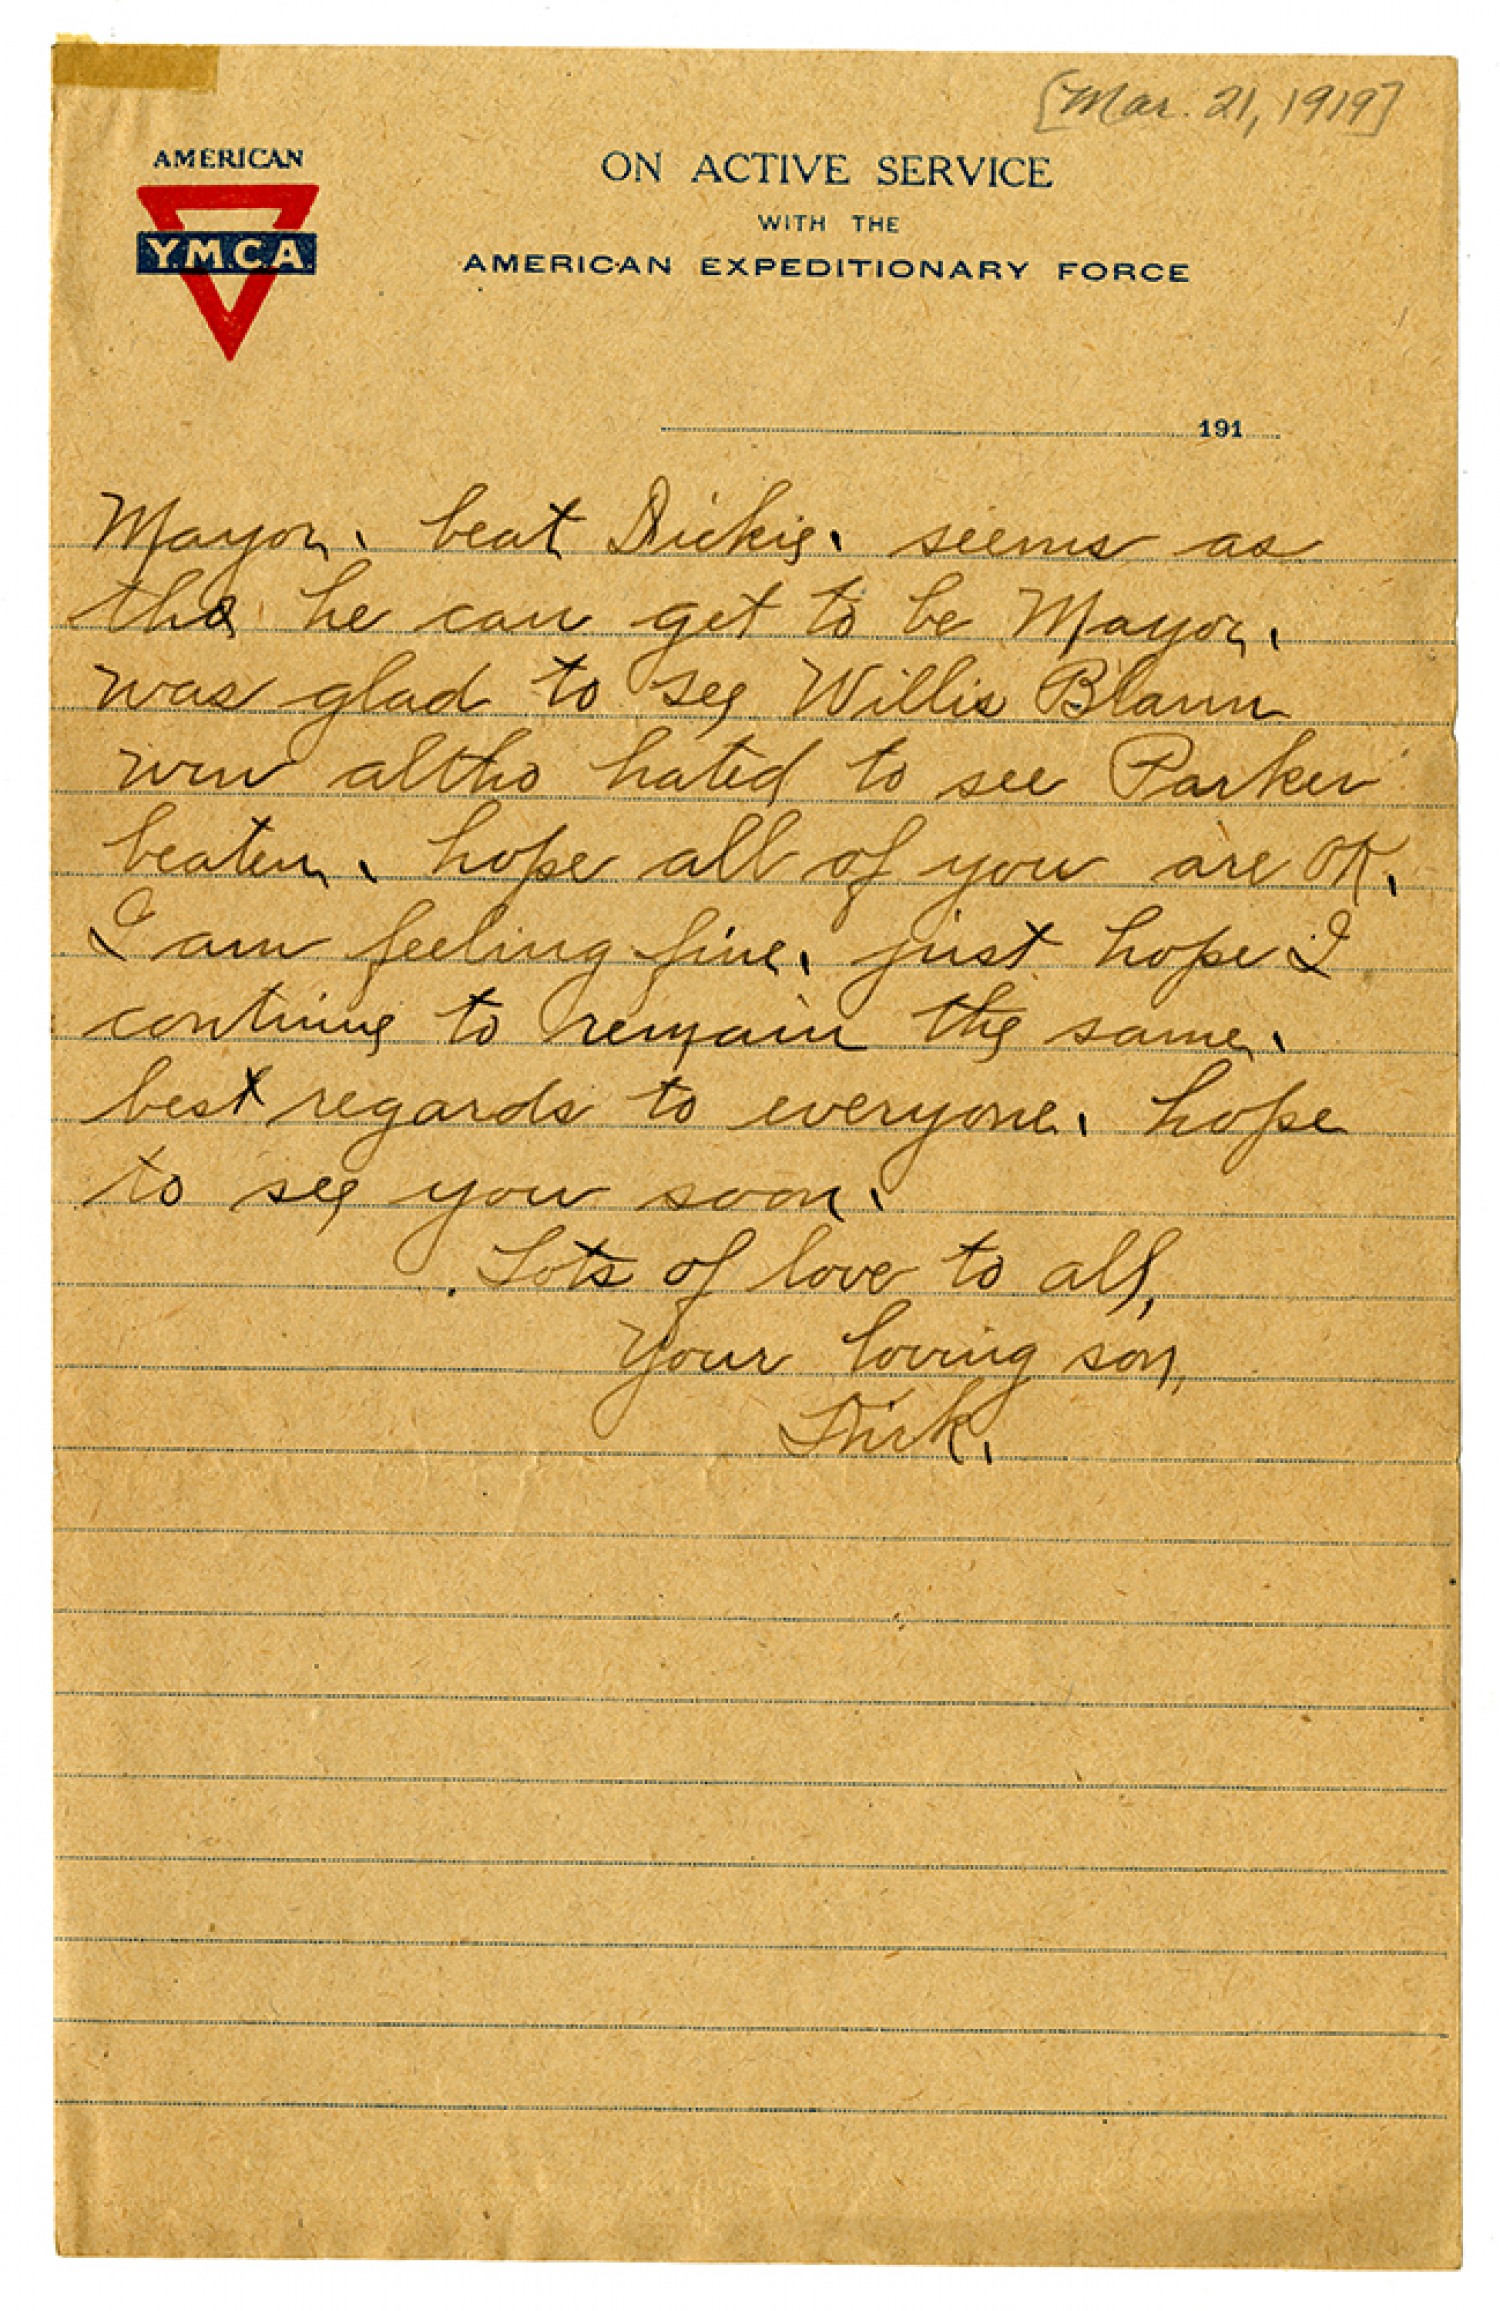 [Mar. 21, 1919]
AMERICAN
Y.M.C.A.
ON ACTIVE SERVICE
WITH THE
AMERICAN EXPEDITIONARY FORCE
191
Mayor. beat Dickie. seems as
tho he can get to be Mayor.
was glad to see Willis Blann
win altho hated to see Parker
beaten. hope all of you are OK.
I am feeling fine. just hope I
continue to remain the same.
best regards to everyone. hope
to see you soon.
Lots of love to all,
Your loving son,
Dick.